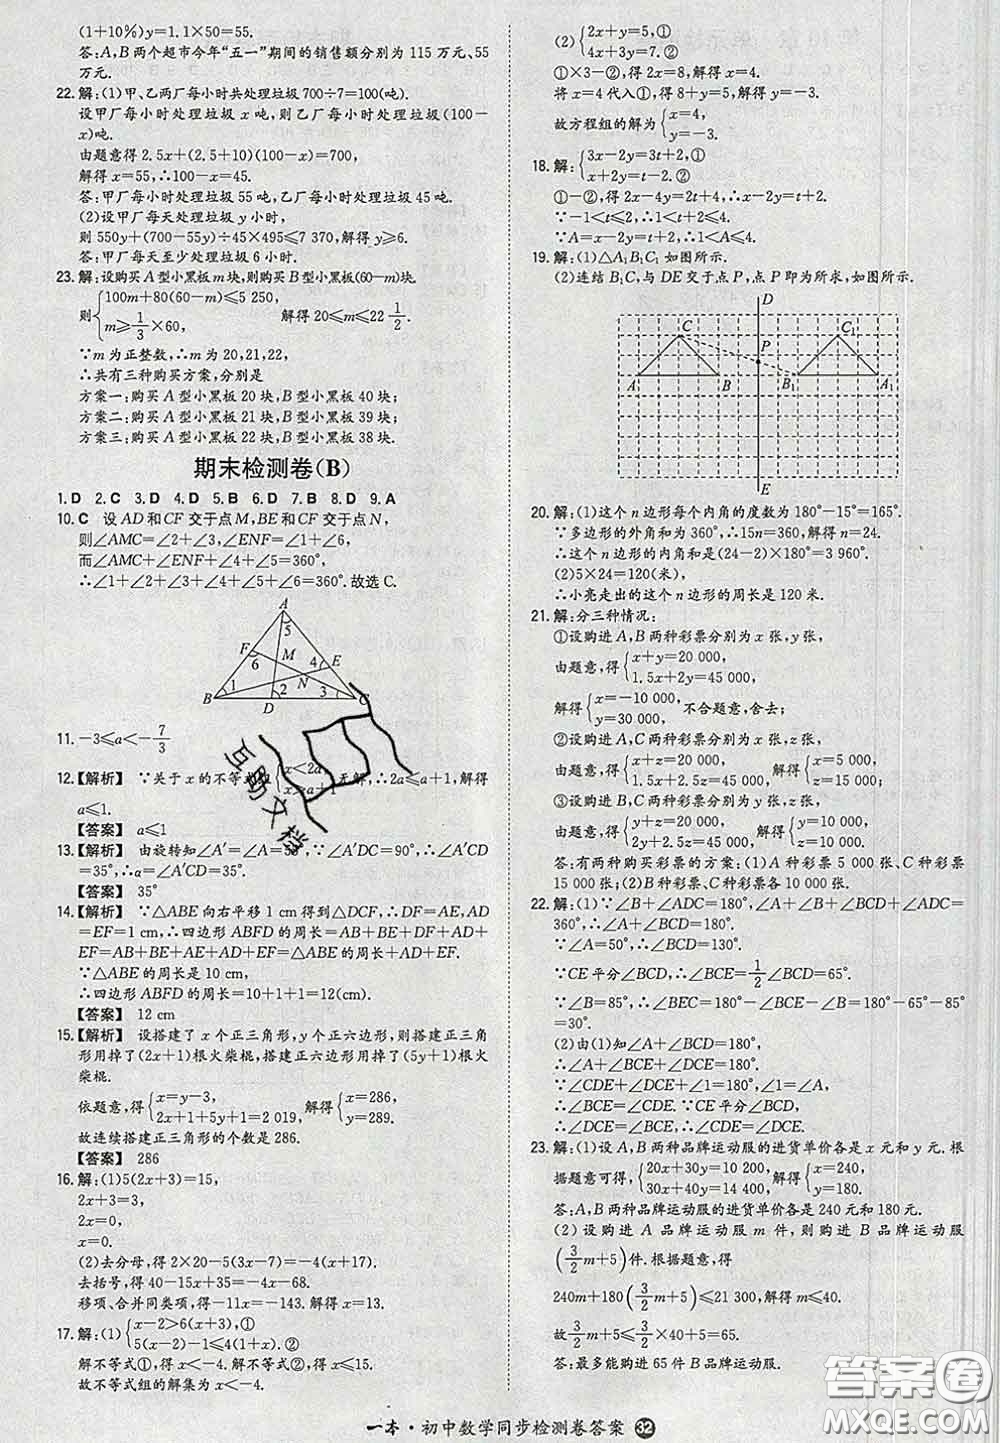 (1+10%)y=1.1×50=55.
答:A,B两个超市今年“五一”期间的销售额分别为115万元、55
万元.
22.解:(1)甲、乙两厂每小时共处理垃圾700÷7=100(吨).
设甲厂每小时处理垃圾x吨,则乙厂每小时处理垃圾(100-
x)吨.
由题意得2.5x+(2.5+10)(100-x)=700,
解得x=55,∴100-x=45.
答:甲厂每小时处理垃圾55吨,乙厂每小时处理垃圾45吨.
(2)设甲厂每天处理垃圾y小时,
则550y+(700-55y)÷45×495≤7 370,解得y≥6.
答:甲厂每天至少处理垃圾6小时.
23.解:设购买A型小黑板m块,则购买B型小黑板(60-m)块.
则{100m+80(60-m)≤5 250,
m≥1/3×60, 解得20≤m≤22 1/2.
∵m为正整数,∴m为20,21,22,
∴共有三种购买方案,分别是
方案一:购买A型小黑板20块,B型小黑板40块;
方案二:购买A型小黑板21块,B型小黑板39块;
方案三:购买A型小黑板22块,B型小黑板38块.
期末检测卷(B)
1.D 2.C 3.D 4.D 5.B 6.D 7.B 8.D 9.A
10.C 设AD和CF交于点M,BE和CF交于点N,
则∠AMC=∠2+∠3,∠ENF=∠1+∠6,
而∠AMC+∠ENF+∠4+∠5=360°,
∴∠1+∠2+∠3+∠4+∠5+∠6=360°.故选C.
A
5
F 6 M 4 E
N
B 1 2 3 C
D
11.-3≤a<-7/3
12.【解析】 ∵关于x的不等式组{x<2a, x>a+1 无解,∴2a≤a+1,解得
a≤1.
【答案】 a≤1
13.【解析】 由旋转知∠A'=∠A=55°,∵∠A'DC=90°,∴∠A'CD
=35°,∴α=∠A'CD=35°.
【答案】 35°
14.【解析】 ∵△ABE向右平移1 cm得到△DCF,∴DF=AE,AD
=EF=1 cm,∴四边形ABFD的周长=AB+BE+DF+AD+
EF=AB+BE+AE+AD+EF=△ABE的周长+AD+EF.
∵△ABE的周长是10 cm,
∴四边形ABFD的周长=10+1+1=12(cm).
【答案】 12 cm
15.【解析】 设搭建了x个正三角形,y个正六边形,则搭建正三角
形用掉了(2x+1)根火柴棍,搭建正六边形用掉了(5y+1)根火
柴棍.
依题意,得{x=y-3, 2x+1+5y+1=2 019, 解得{x=286, y=289.
故连续搭建正三角形的个数是286.
【答案】 286
16.解:(1)5(2x+3)=15,
2x+3=3,
2x=0,
x=0.
(2)去分母,得2×20-5(3x-7)=-4(x+17).
去括号,得40-15x+35=-4x-68.
移项、合并同类项,得-11x=-143.解得x=13.
17.解:(1){x-2>6(x+3),① 5(x-2)-1≤4(x+1).②
解不等式①,得x<-4.解不等式②,得x≤15.
故不等式组的解集为x<-4.
(2){2x+y=5,① 4x+3y=7.②
①×3-②,得2x=8,解得x=4.
将x=4代入①,得8+y=5,解得y=-3.
故方程组的解为{x=4, y=-3.
18.解:{3x-2y=3t+2,① x+2y=t-2.②
①-②,得2x-4y=2t+4,∴x-2y=t+2.
∵-1<t≤2,∴1<t+2≤4,
∵A=x-2y=t+2,∴1<A≤4.
19.解:(1)△A1B1C1如图所示.
(2)连结B1C,与DE交于点P,点P即为所求,如图所示.
D
C C1
P
A B B1 A1
E
20.解:(1)这个n边形每个内角的度数为180°-15°=165°.
∵多边形的外角和为360°,∴15n=360,解得n=24.
∴这个n边形的内角和是(24-2)×180°=3 960°.
(2)5×24=120(米),
∴小亮走出的这个n边形的周长是120米.
21.解:分三种情况:
①设购进A,B两种彩票分别为x张,y张,
由题意,得{x+y=20 000, 1.5x+2y=45 000,
解得{x=-10 000, y=30 000, 不合题意,舍去;
②设购进A,C两种彩票分别为x张,z张,
由题意,得{x+z=20 000, 1.5x+2.5z=45 000, 解得{x=5 000, z=15 000;
③设购进B,C两种彩票分别为y张,z张,
由题意,得{y+z=20 000, 2y+2.5z=45 000, 解得{y=10 000, z=10 000.
答:有两种购买彩票的方案:(1)A种彩票5 000张、C种彩票
15 000张;(2)B种彩票、C种彩票各10 000张.
22.解:(1)∵∠B+∠ADC=180°,∠A+∠B+∠BCD+∠ADC=
360°,∴∠A+∠BCD=180°.
∵∠A=50°,∴∠BCD=130°.
∵CE平分∠BCD,∴∠BCE=1/2∠BCD=65°.
∵∠B=85°,∴∠BEC=180°-∠BCE-∠B=180°-65°-85°
=30°.
(2)由(1)知∠A+∠BCD=180°,
∴∠A+∠BCE+∠DCE=180°.
∵∠CDE+∠DCE+∠1=180°,∠1=∠A,
∴∠BCE=∠CDE.∵CE平分∠BCD,
∴∠DCE=∠BCE,∴∠CDE=∠DCE.
23.解:(1)设A,B两种品牌运动服的进货单价各是x元和y元.根
据题意,得{20x+30y=10 200, 30x+40y=14 400, 解得{x=240, y=180.
答:A,B两种品牌运动服的进货单价各是240元和180元.
(2)设购进A品牌运动服m件,则购进B品牌运动服
(3/2m+5)件.根据题意,得
240m+180(3/2m+5)≤21 300,解得m≤40.
故3/2m+5≤3/2×40+5=65.
答:最多能购进65件B品牌运动服.
一本·初中数学同步检测卷答案 32
互助文档
答案圈
MXQE.COM